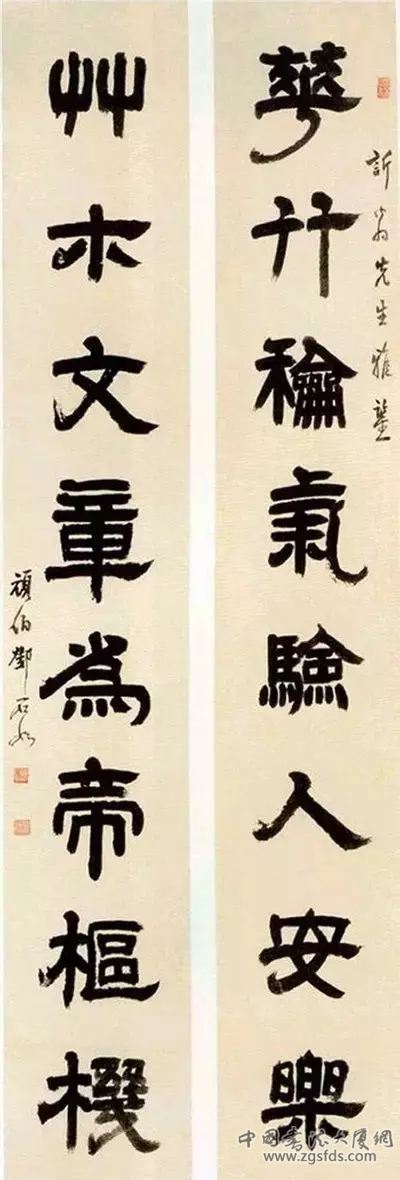 訢翁先生雅鑒
華竹龢氣驗人安樂
艸木文章為帝樞機
頑伯鄧石如
中國書法大厦網
www.zgsfds.com